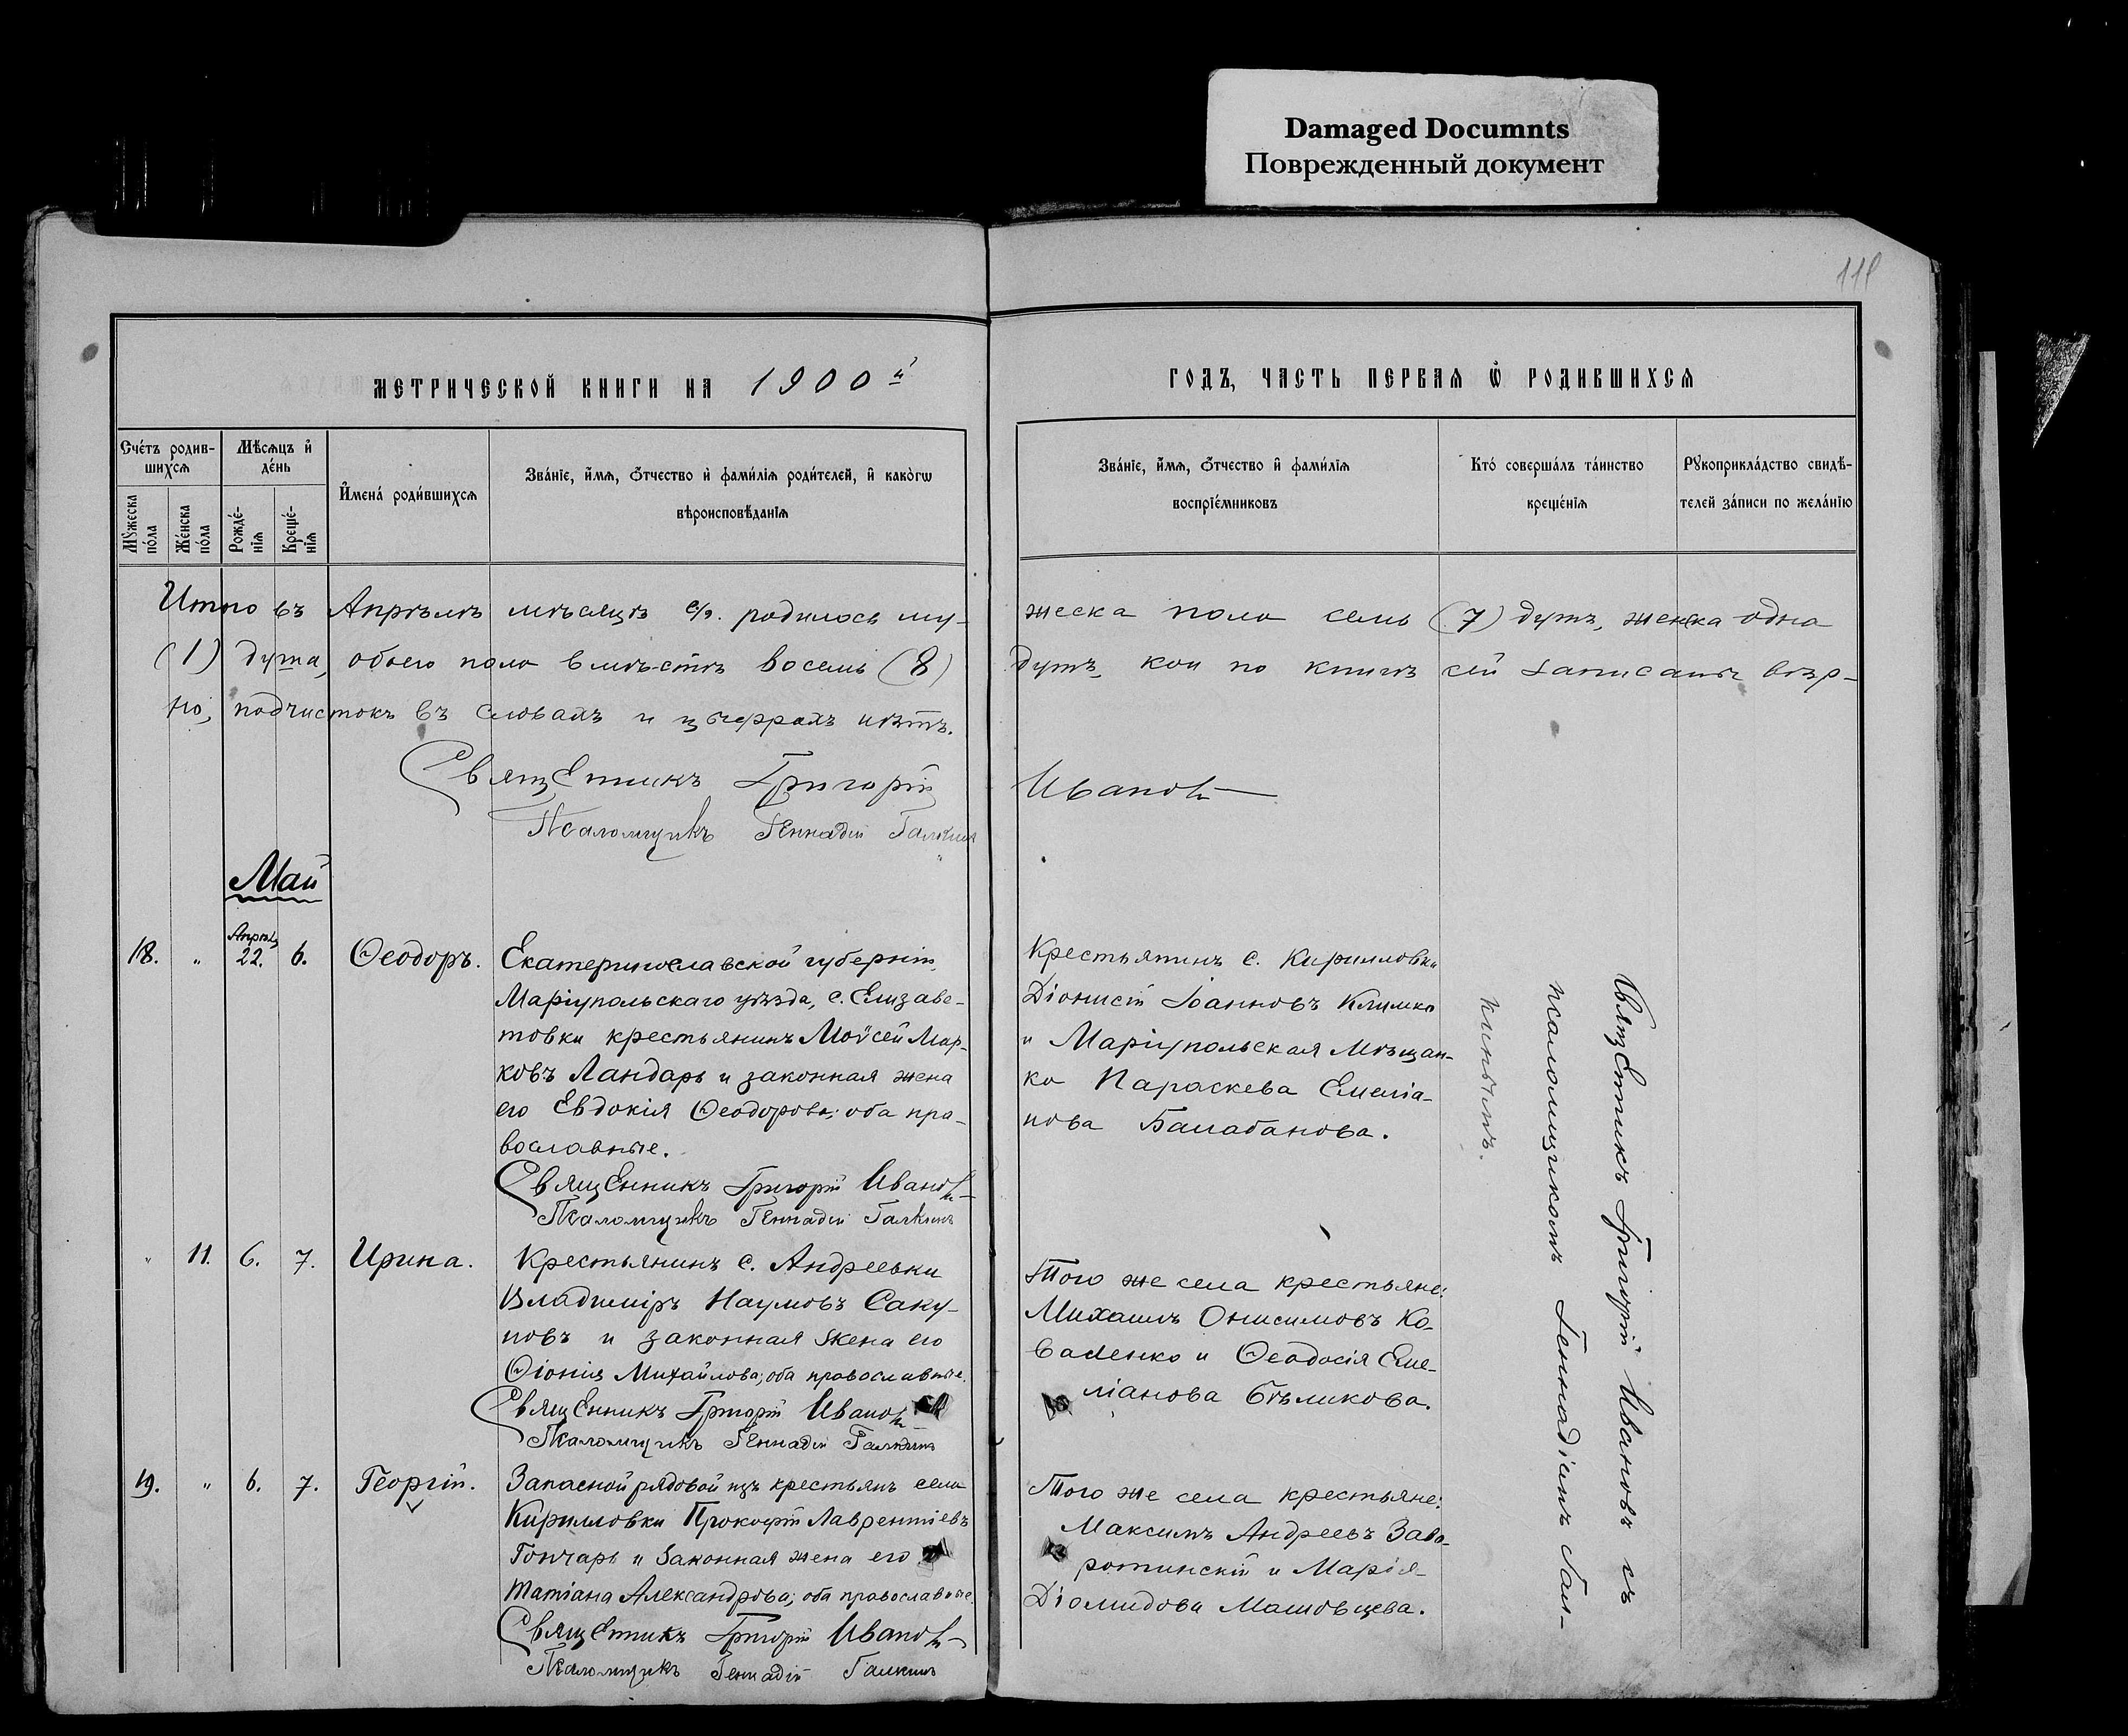 Damaged Documnts
Поврежденный документ
111
МЕТРИЧЕСКОЙ КНИГИ НА 1900й
ГОДЪ, ЧАСТЬ ПЕРВАѦ Ѡ РОДИВШИХСѦ
Сче́тъ родив-
шихсѧ
Мꙋжеска
по́ла
Же́нска
по́ла
Мѣсѧцъ и҆
де́нь
Рожде́-
нїѧ
Креще́-
нїѧ
И҆мена̀ роди́вшихсѧ
Зва́нїе, и҆́мѧ, ѻ҆́тчество и҆ фами́лїѧ роди́телей, и҆ како́гѡ
вѣроисповѣ́данїѧ
Зва́нїе, и҆́мѧ, ѻ҆́тчество и҆ фами́лїѧ
воспрїе́мниковъ
Кто̀ соверша́лъ та́инство
креще́нїѧ
Рꙋкоприкла́дство свидѣ́-
телей за́писи по жела́нїю
Итого въ Апрѣлѣ мѣсяцѣ с/г. родилось му-
жеска пола семь (7) душъ, женска одна
(1) душа, обоего пола вмѣстѣ восемь (8)
душъ, кои по книгѣ сей записаны вѣр-
но, подчистокъ въ словахъ и цыфрахъ нѣтъ.
Священникъ Григорій
Ивановъ
Псаломщикъ Геннадій Галкинъ
Май
18. " Апрѣль 22. 6. Ѳеодоръ.
Екатеринославской губерніи,
Маріупольскаго уѣзда, с. Елизаве-
товки крестьянинъ Моѵсей Мар-
ковъ Ландарь и законная жена
его Евдокія Ѳеодорова; оба пра-
вославные.
Священникъ Григорій Ивановъ
Псаломщикъ Геннадій Галкинъ
Крестьянинъ с. Кирилловки
Діонисій Іоанновъ Климко
и Маріупольская Мѣщан-
ка Параскева Емеліа-
нова Балабанова.
" 11. 6. 7. Ирина.
Крестьянинъ с. Андреевки
Владиміръ Наумовъ Саку-
новъ и законная жена его
Ѳіонія Михайлова; оба православные.
Священникъ Григорій Ивановъ
Псаломщикъ Геннадій Галкинъ
Того же села крестьяне:
Михаилъ Онисимовъ Ко-
валенко и Ѳеодосія Еме-
ліанова Бѣликова.
19. " 6. 7. Георгій.
Запасной рядовой изъ крестьянъ села
Кирилловки Прокофій Лаврентіевъ
Гончарь и законная жена его
Татіана Александрова; оба православные.
Священникъ Григорій Ивановъ
Псаломщикъ Геннадій Галкинъ
Того же села крестьяне:
Максимъ Андреевъ Заво-
ротинскій и Марія
Діомидова Машовцева.
Священникъ Григорій Ивановъ съ
псаломщикомъ Геннадіемъ Гал-
кинымъ.